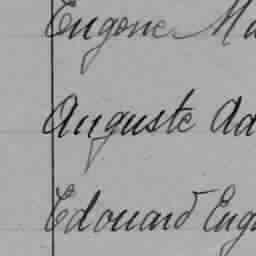 Eugène Ma
Auguste Ad
Edouard Eug